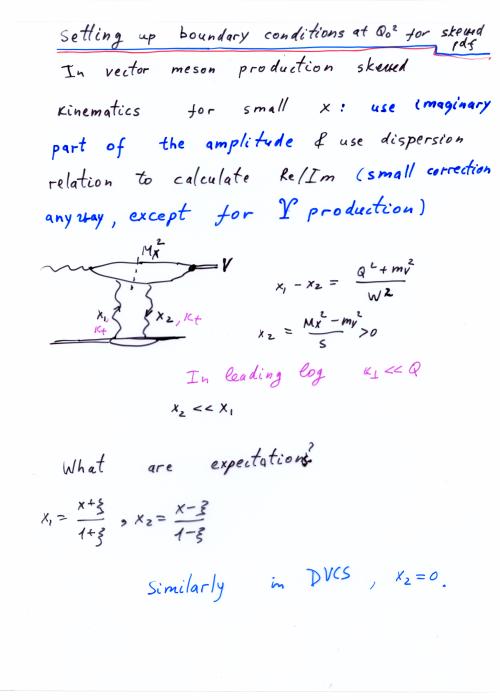 Setting up boundary conditions at Q₀² for skewed pdf
In vector meson production skewed
kinematics for small x: use imaginary
part of the amplitude & use dispersion
relation to calculate Re/Im (small correction
anyway, except for Υ production)
Mx²
V
x₁ - x₂ = (Q² + mv²) / W²
x₁ x₂, kt
kt
x₂ = (Mx² - mv²) / s > 0
In leading log k⊥ << Q
x₂ << x₁
What are expectations?
x₁ = (x+ξ) / (1+ξ) , x₂ = (x-ξ) / (1-ξ)
Similarly in DVCS , x₂=0.